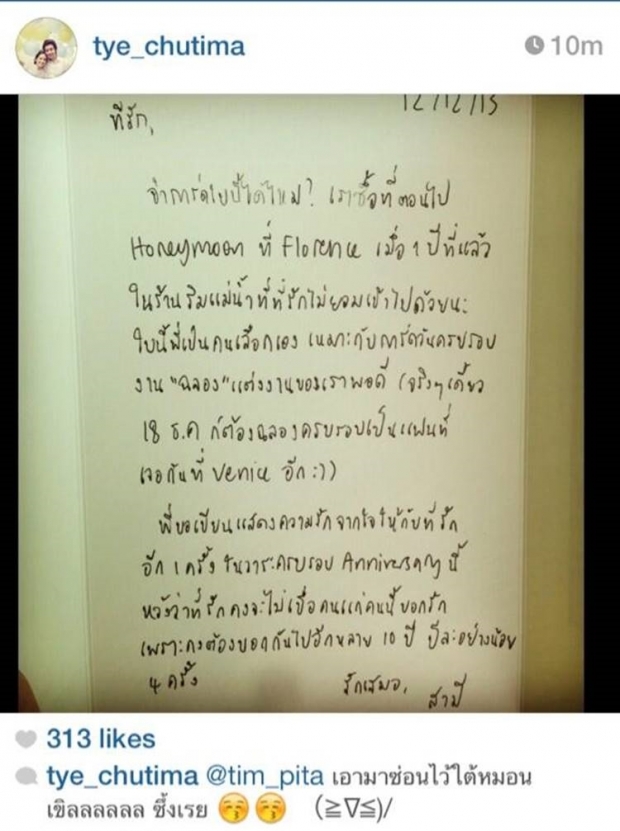 tye_chutima
10m
12/12/13
ที่รัก,
จำการ์ดใบนี้ได้ไหม? เราซื้อที่ตอนไป
Honeymoon ที่ Florence เมื่อ 1 ปีที่แล้ว
ในร้านริมแม่น้ำที่ที่รักไม่ยอมเข้าไปด้วยนะ
ใบนี้พี่เป็นคนเลือกเอง เหมาะกับการ์ดวันครบรอบ
งาน "ฉลอง" แต่งงานของเราพอดี (จริงๆ เดี๋ยว
18 ธ.ค ก็ต้องฉลองครบรอบเป็นแฟนที่
เจอกันที่ Venice อีก :))
พี่ขอเขียนแสดงความรักจากใจให้กับที่รัก
อีก 1 ครั้ง ในวาระครบรอบ Anniversary นี้
หวังว่าที่รักคงจะไม่เบื่อคนแก่คนนี้บอกรัก
เพราะคงต้องบอกกันไปอีกหลาย 10 ปี ปีละอย่างน้อย
4 ครั้ง
รักเสมอ,
สามี
313 likes
tye_chutima @tim_pita เอามาซ่อนไว้ใต้หมอน
เขิลลลลลล ซึ้งเรย 😚😚 (≧∇≦)/